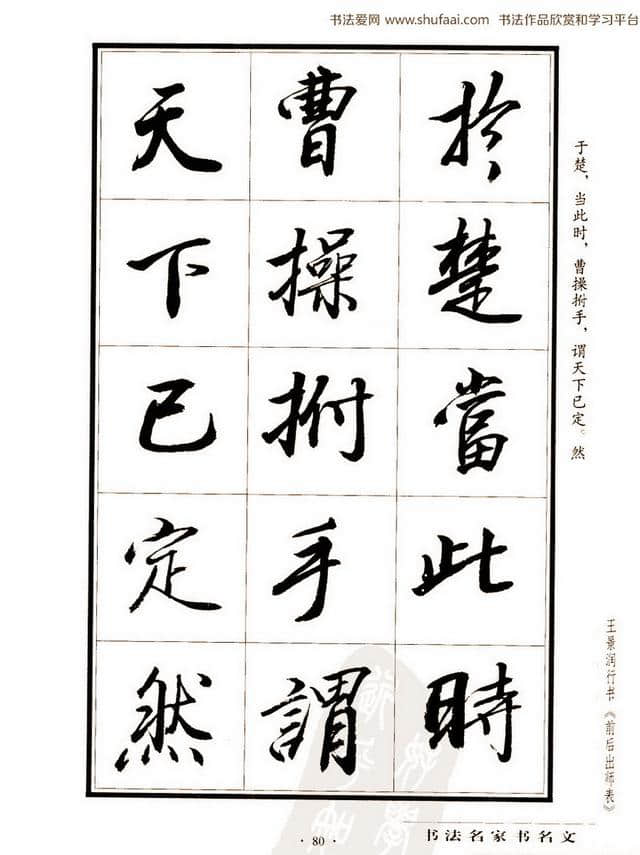 书法爱网 www.shufaai.com 书法作品欣赏和学习平台
於楚當此時
曹操拊手謂
天下已定然
于楚，当此时，曹操拊手，谓天下已定。然
王景润行书《前后出师表》
书法名家书名文
· 80 ·